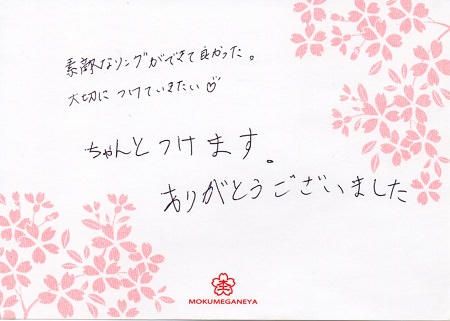 素敵なリングができて良かった。
大切に つけていきたい♡
ちゃんと つけます。
ありがとうございました
MOKUMEGANEYA